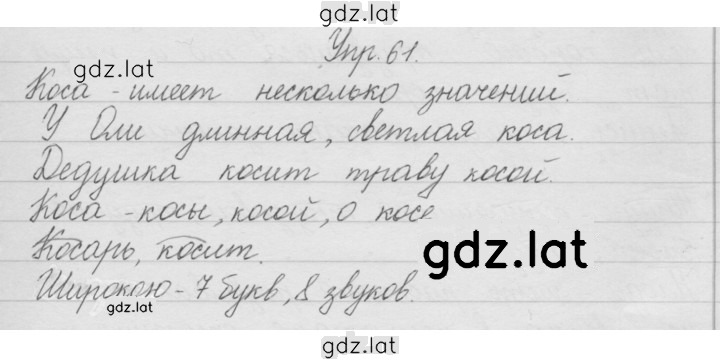 gdz.lat
Упр. 61.
gdz.lat
Коса - имеет несколько значений.
У Оли длинная, светлая коса.
Дедушка косит траву косой.
Коса - косы, косой, о косе
gdz.lat
Косарь, косит.
Широкою - 7 букв, 8 звуков.
gdz.lat
gdz.lat